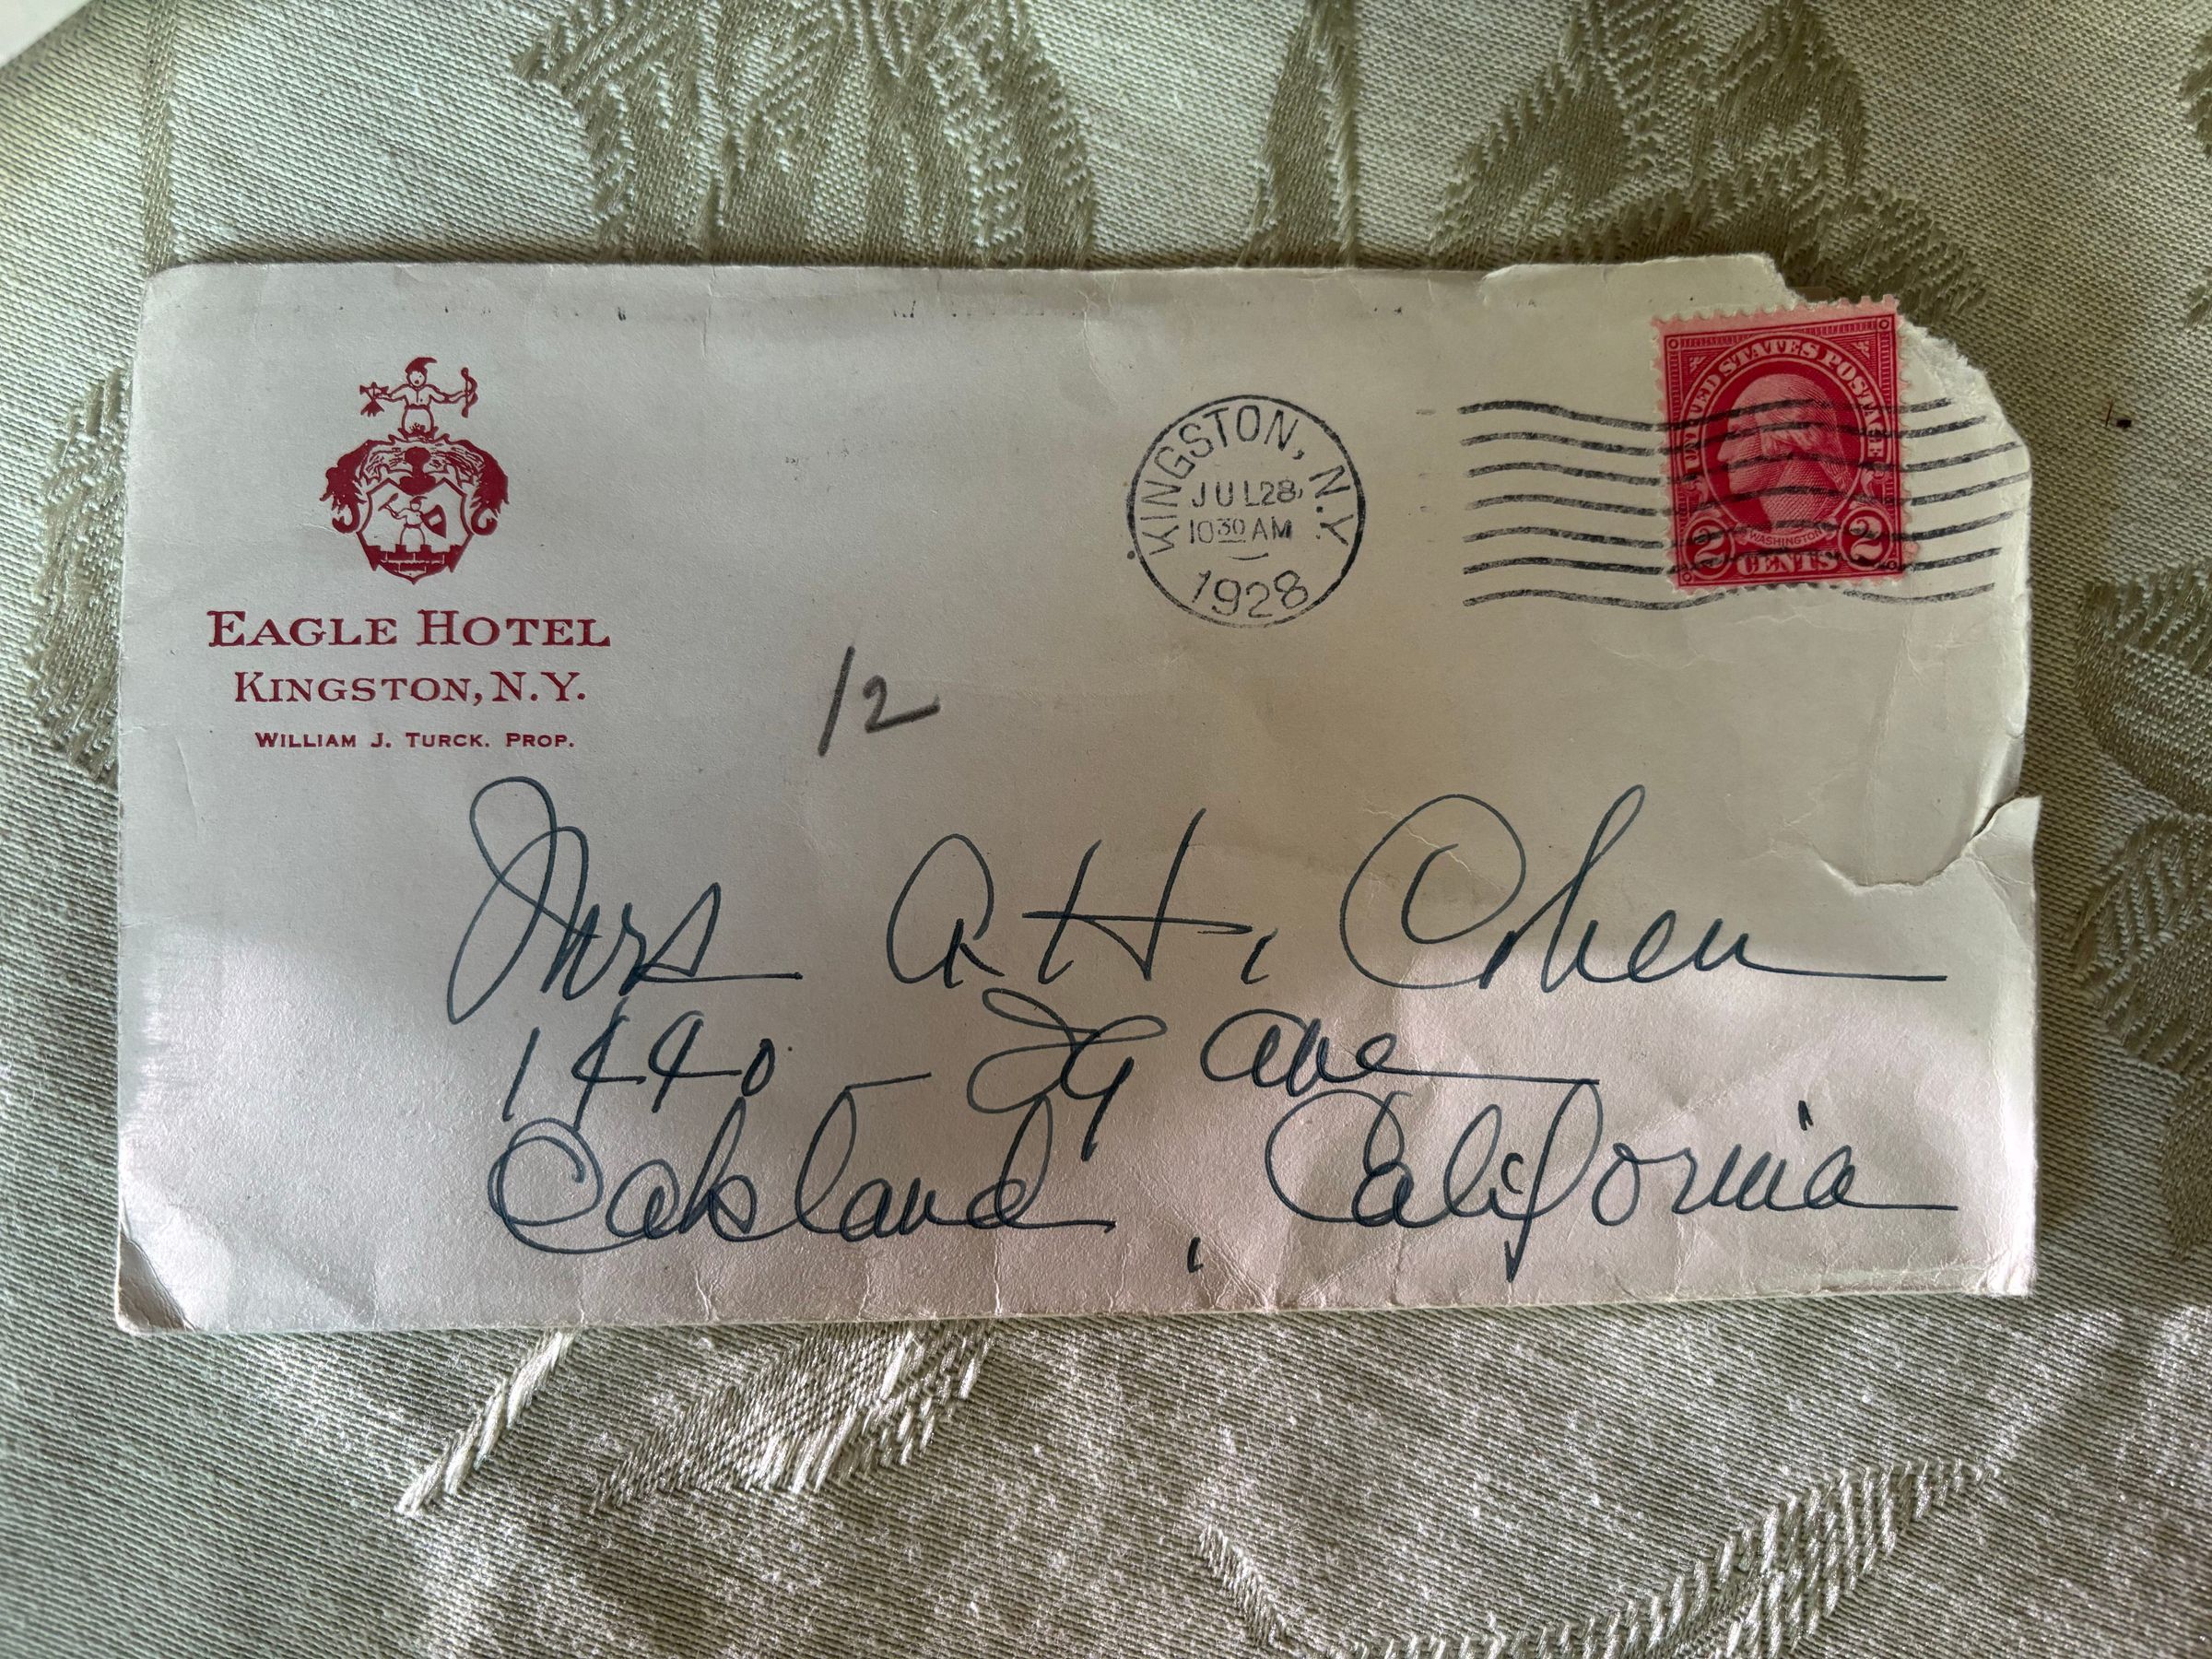 EAGLE HOTEL
KINGSTON, N.Y.
WILLIAM J. TURCK. PROP.
KINGSTON, N.Y.
JUL 28
10 30 AM
1928
UNITED STATES POSTAGE
WASHINGTON
2 CENTS 2
12
Mrs A H. Cohen
1440 - 29 Ave
Oakland, California